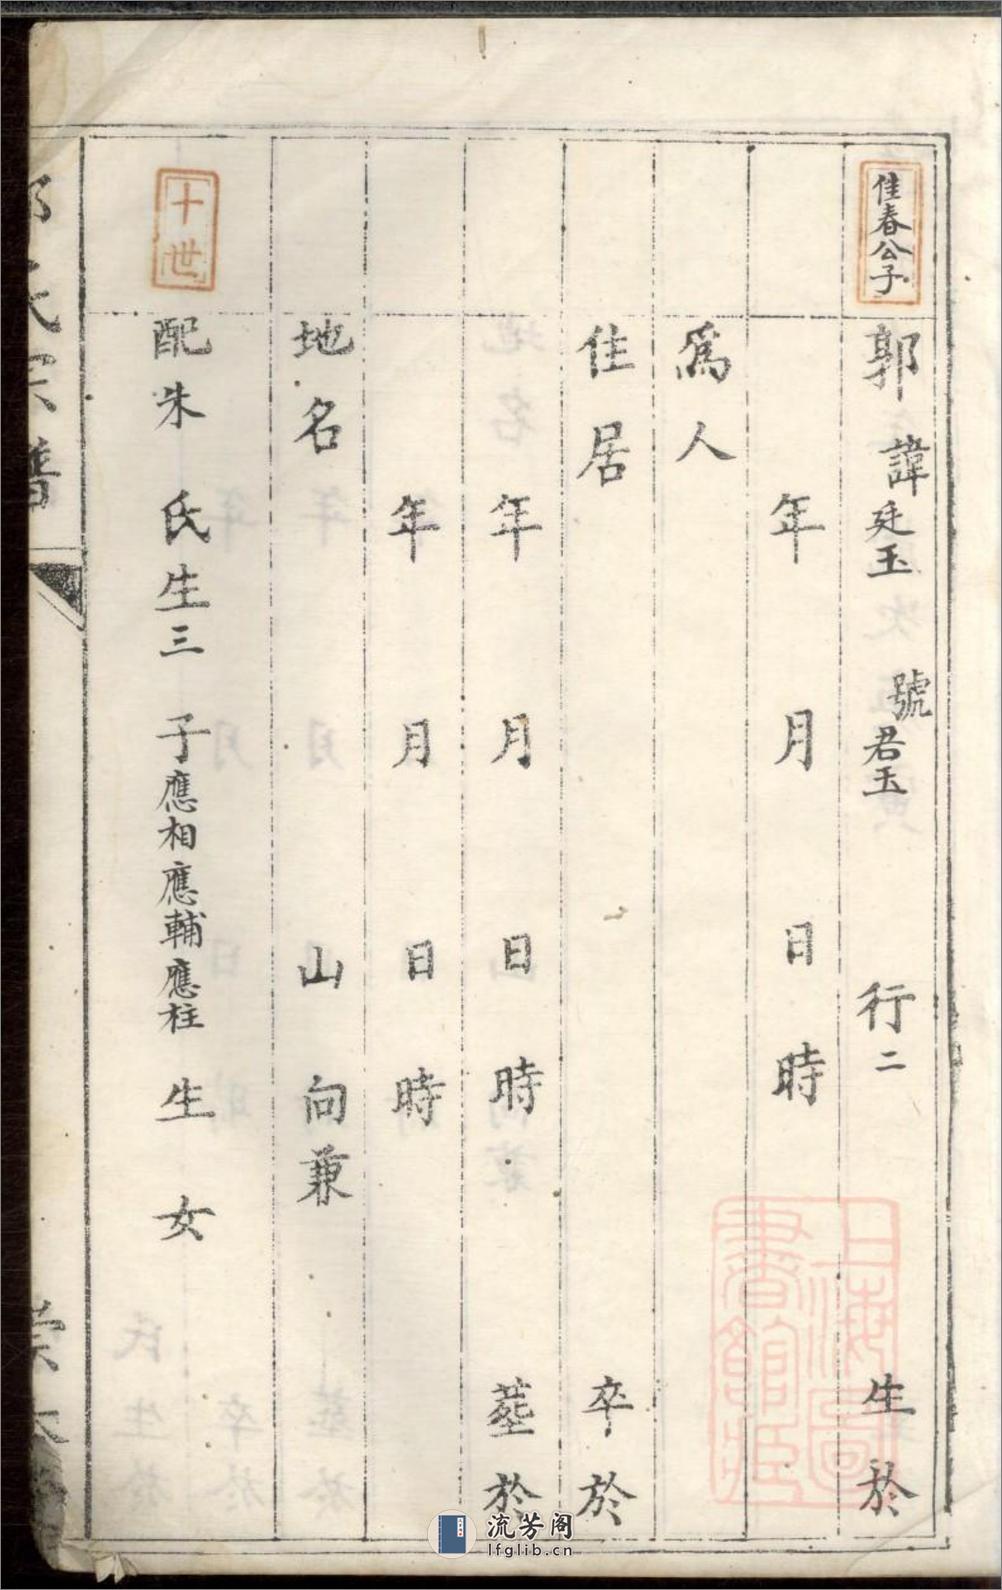 佳春公子
郭諱廷玉 號君玉 行二 生於
年 月 日 時
爲人
住居 卒於
年 月 日 時 塟於
年 月 日 時
地名 山 向兼
十世
配朱 氏生三 子應相應輔應柱 生 女
氏宗譜
上海圖
書館藏
流芳阁
lfglib.cn